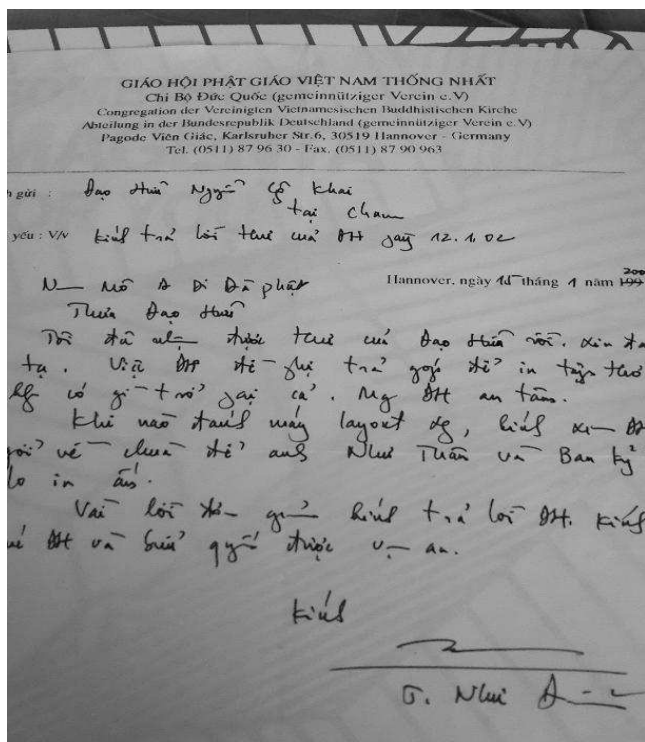 GIÁO HỘI PHẬT GIÁO VIỆT NAM THỐNG NHẤT
Chi Bộ Đức Quốc (gemeinnütziger Verein e.V)
Congregation der Vereinigten Vietnamesischen Buddhistischen Kirche
Abteilung in der Bundesrepublik Deutschland (gemeinnütziger Verein e.V)
Pagode Viên Giác, Karlsruher Str.6, 30519 Hannover - Germany
Tel. (0511) 87 96 30 - Fax. (0511) 87 90 963
h gửi : Đạo Hữu Nguyễn Khai
tại Cham
yếu : V/v kính trả lời thư của ĐH ngày 12.1.02
Hannover, ngày 15 tháng 1 năm 199 200
Nam Mô A Di Đà Phật
Thưa Đạo Hữu
Tôi đã nhận được thư của Đạo Hữu rồi. Xin đa
tạ. Việc ĐH đề nghị trả góp để in tập thơ
kg có gì trở ngại cả. Mong ĐH an tâm.
Khi nào đánh máy layout xong, kính xin ĐH
gởi về chùa để anh Như Thân và Ban kỹ
lo in ấn.
Vài lời đơn giản kính trả lời ĐH. Kính
ĐH và bửu quyến được vạn an.
Kính
T. Như